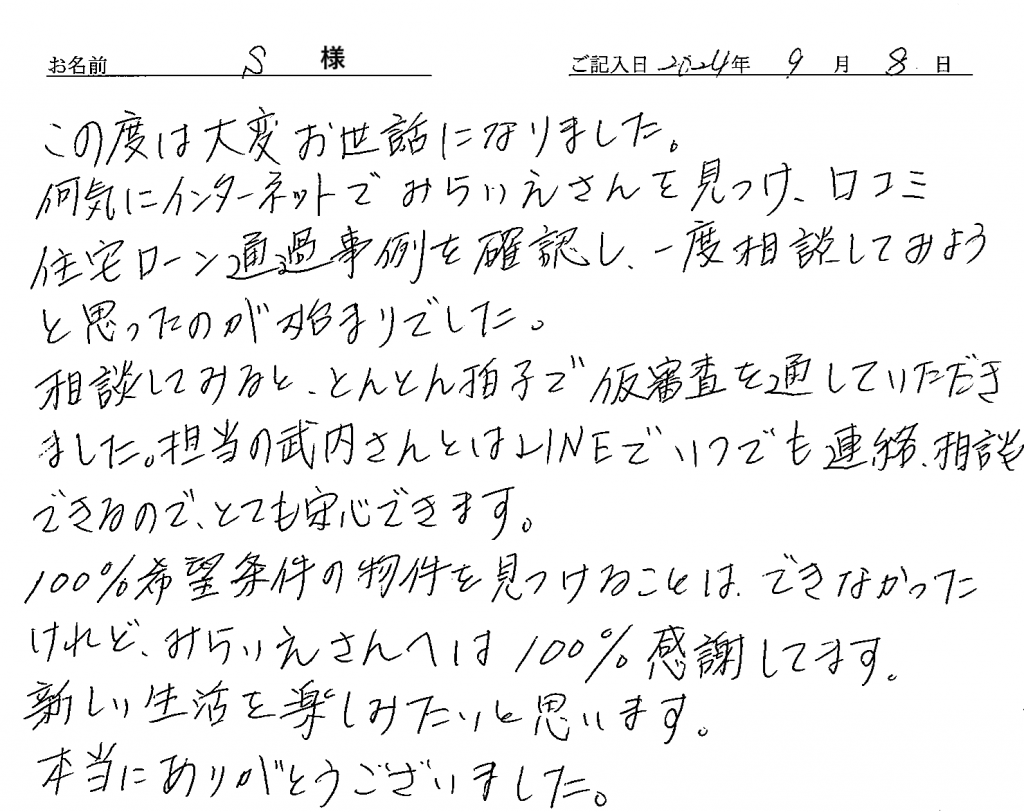 お名前 S 様 ご記入日 2024年 9 月 8 日
この度は大変お世話になりました。
何気にインターネットでみらいえさんを見つけ、口コミ
住宅ローン通過事例を確認し、一度相談してみよう
と思ったのが始まりでした。
相談してみると、とんとん拍子で仮審査を通していただき
ました。担当の武内さんとはLINEでいつでも連絡、相談
できるので、とても安心できます。
100%希望条件の物件を見つけることは、できなかった
けれど、みらいえさんへは100%感謝してます。
新しい生活を楽しみたいと思います。
本当にありがとうございました。